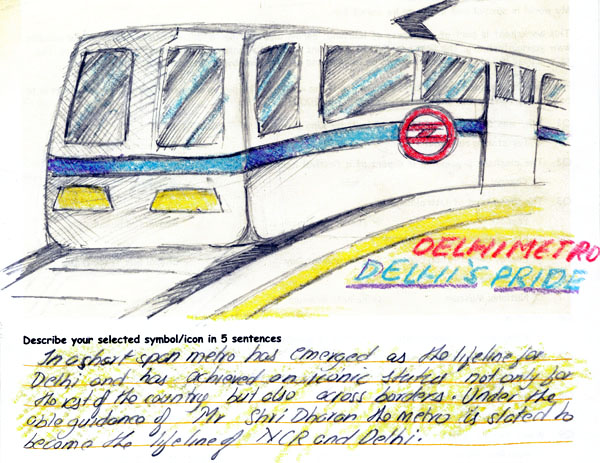 DELHI METRO
DELHI'S PRIDE
Describe your selected symbol/icon in 5 sentences
In a short span metro has emerged as the lifeline for
Delhi and has achieved an iconic status not only for
the rest of the country but also across borders. Under the
able guidance of Mr Shri Dharan the metro is slated to
become the lifeline of NCR and Delhi.